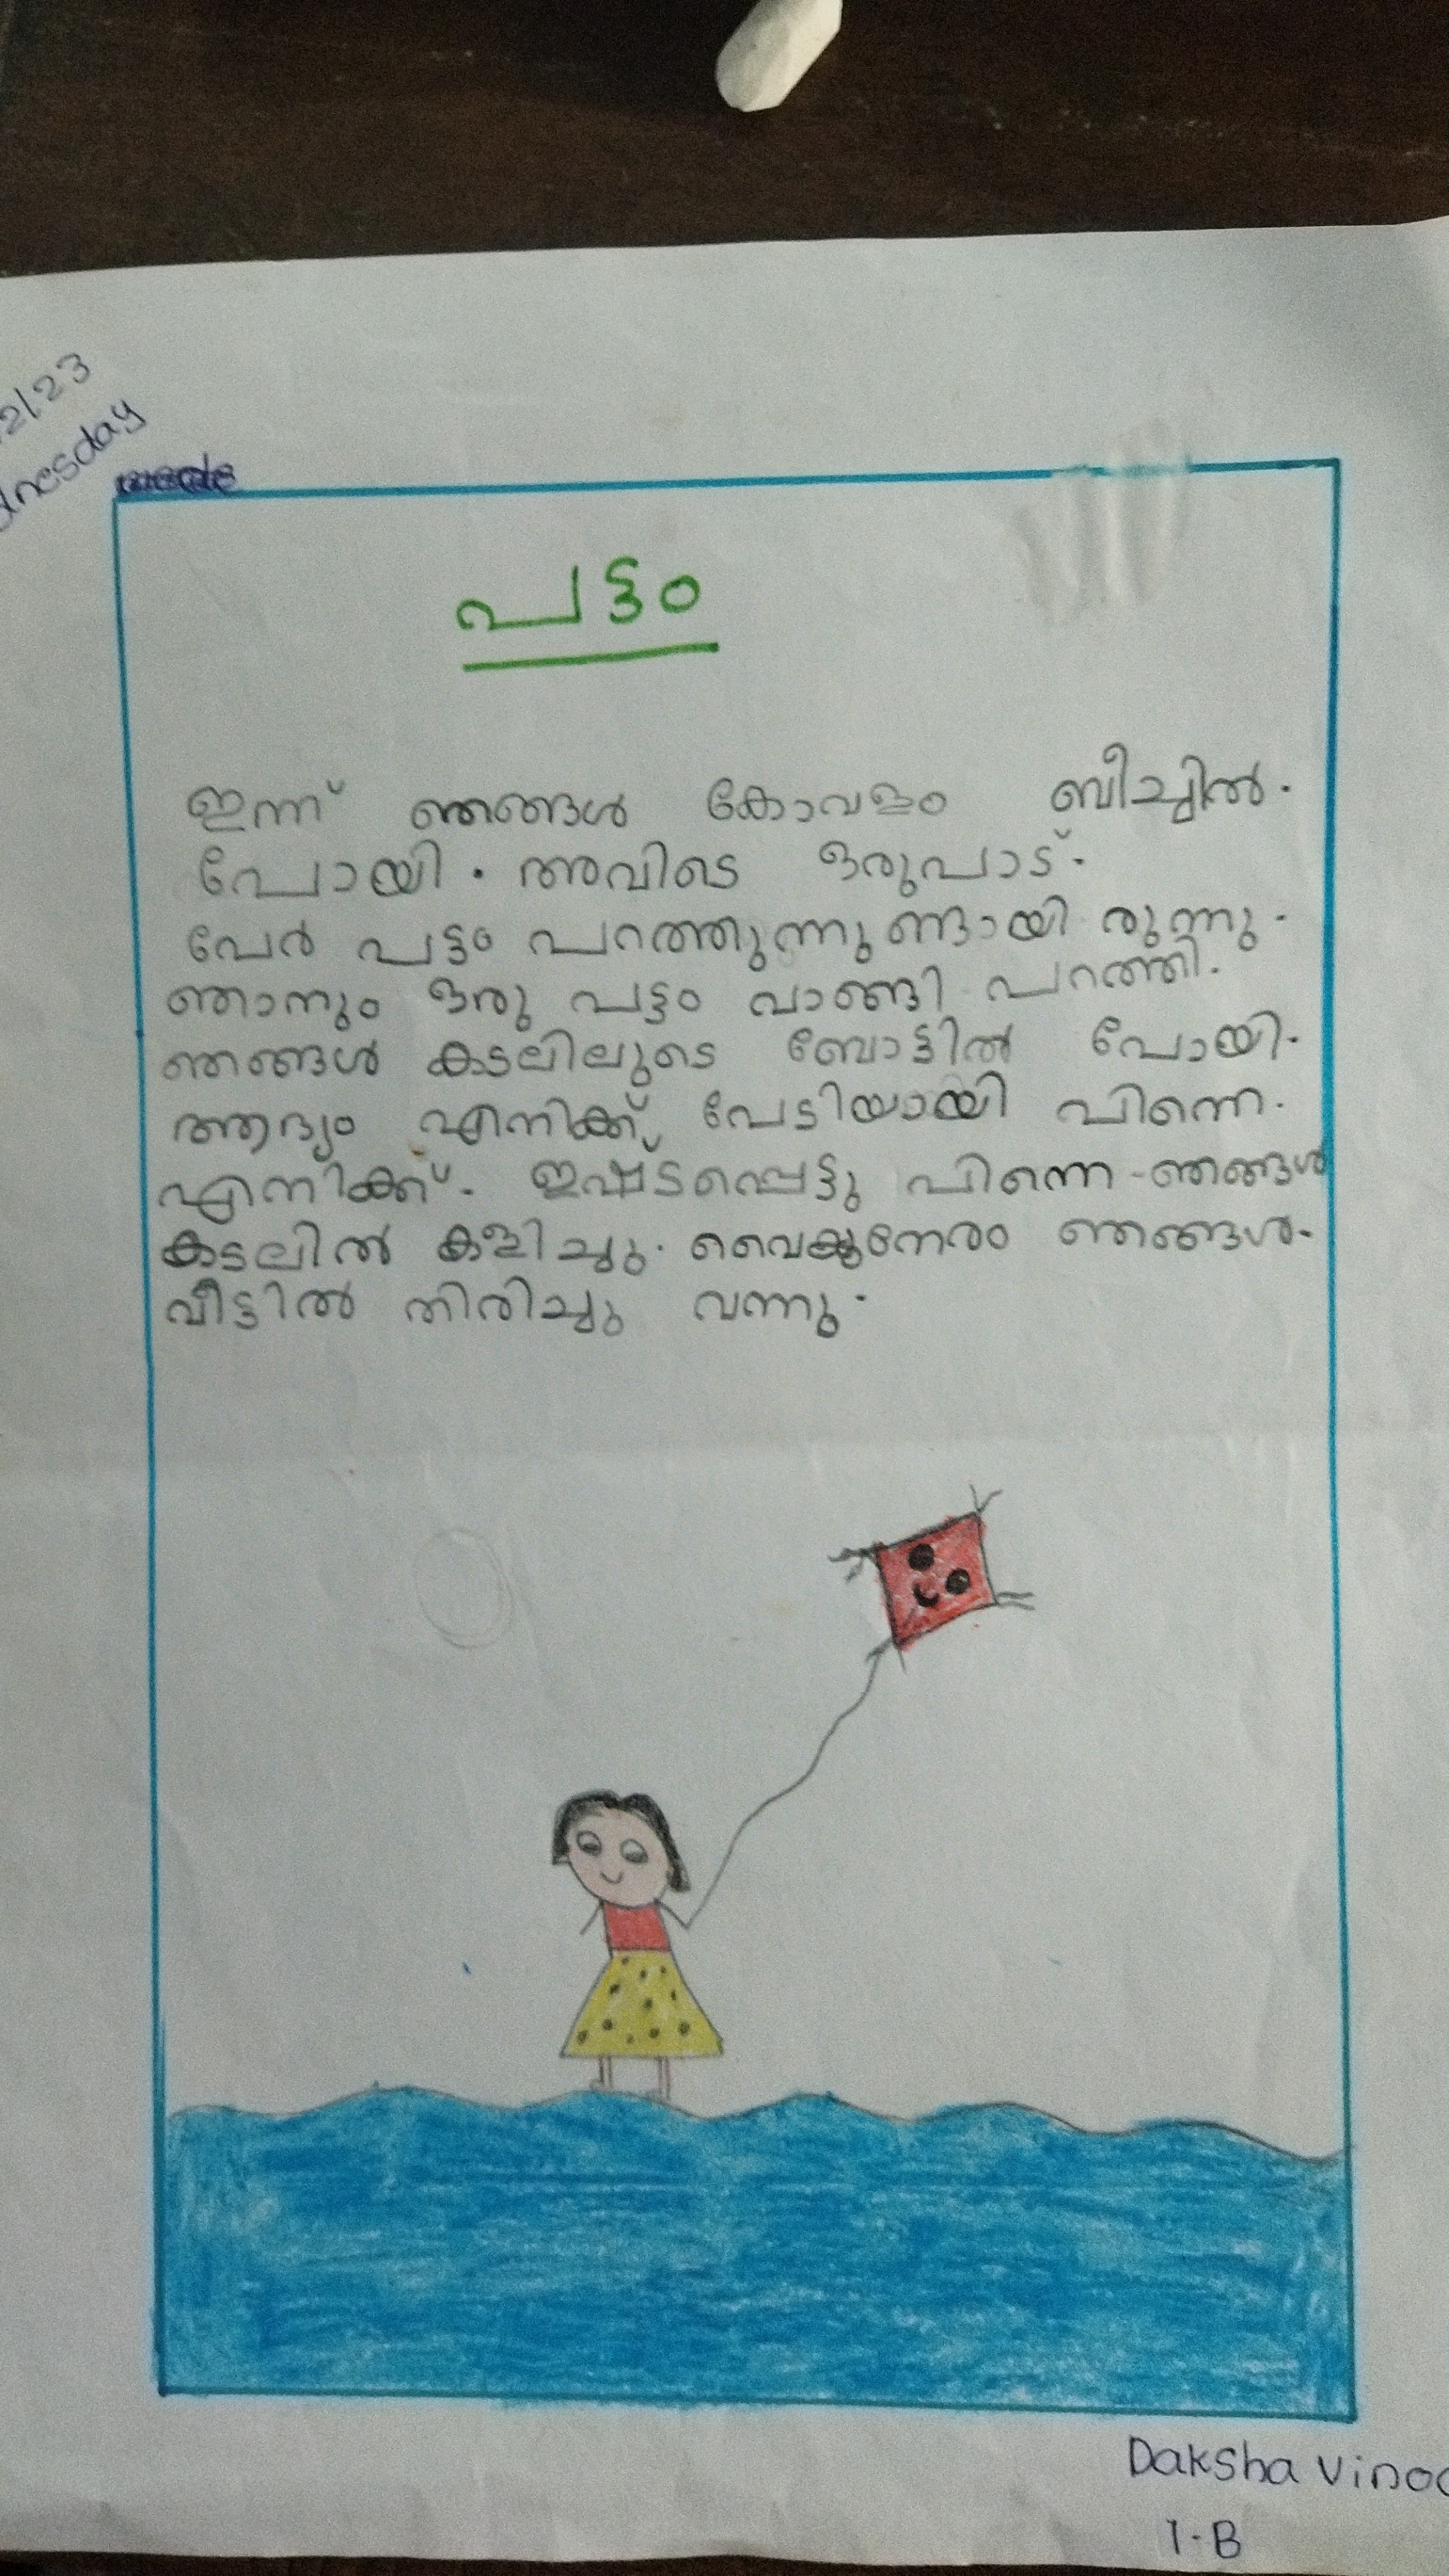 2/23
dnesday
പട്ടം
ഇന്ന് ഞങ്ങൾ കോവളം ബീച്ചിൽ.
പോയി. അവിടെ ഒരുപാട്.
പേർ പട്ടം പറത്തുന്നുണ്ടായി രുന്നു.
ഞാനും ഒരു പട്ടം വാങ്ങി പറത്തി.
ഞങ്ങൾ കടലിലുടെ ബോട്ടിൽ പോയി.
ആദ്യം എനിക്ക് പേടിയായി പിന്നെ.
എനിക്ക്. ഇഷ്ടപ്പെട്ടു പിന്നെ ഞങ്ങൾ
കടലിൽ കളിച്ചു. വൈകുന്നേരം ഞങ്ങൾ.
വീട്ടിൽ തിരിച്ചു വന്നു.
Daksha Vinod
1-B